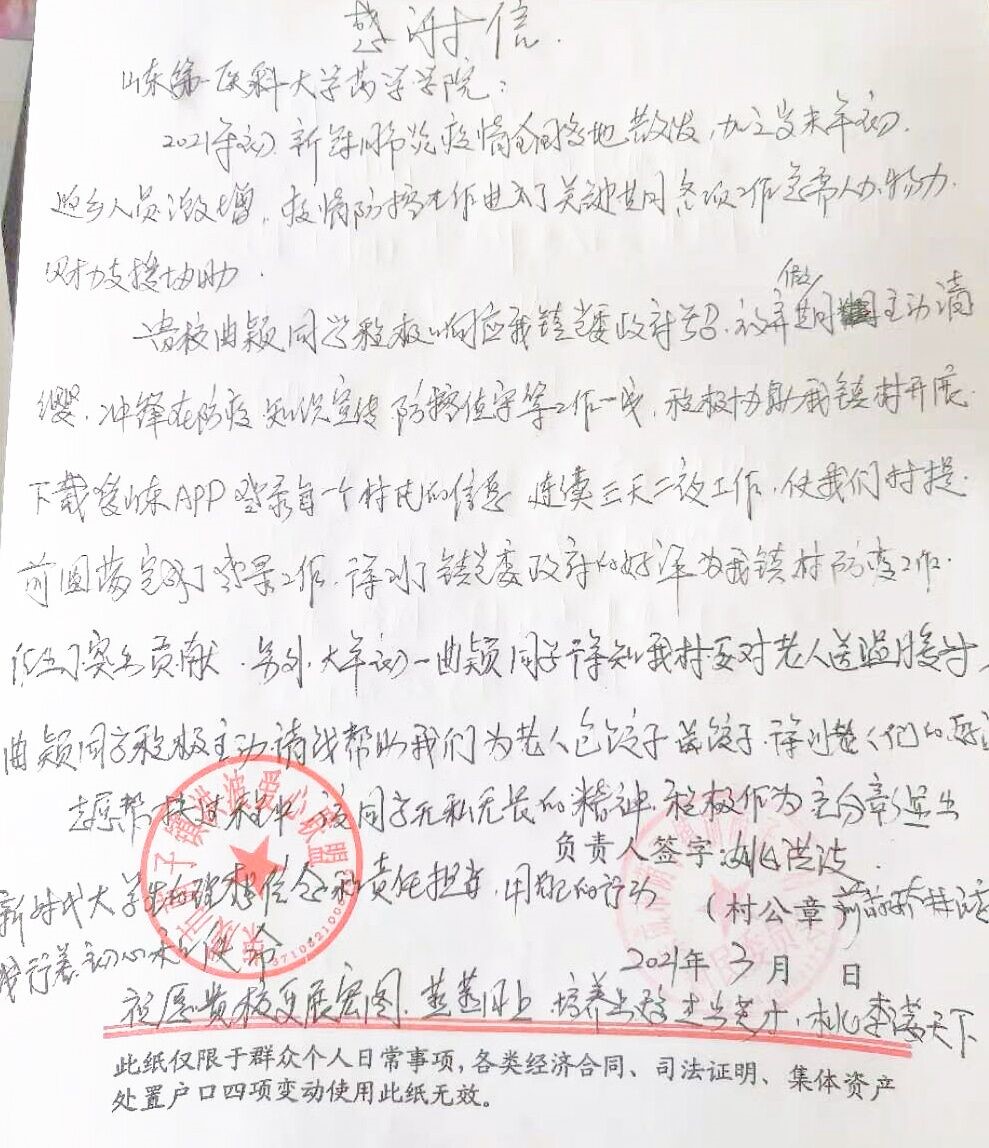 感谢信.
山东第一医科大学药学学院:
2021年初 新冠肺炎疫情全国多地散发,加之岁末年初,
返乡人员激增,疫情防控工作也到了关键期间各项工作急需人力.物力.
财力支援协助.
贵校曲颖同学积极响应我镇党委政府号召.寒假期间主动请
缨.冲锋在防疫知识宣传 防控值守等工作一线,积极协助我镇村开展
下载爱山东APP登录每一个村民的信息 连续三天二夜工作,使我们村提
前圆满完成了登录工作.得到了镇党委政府的好评为我镇村防疫工作
作出了突出贡献.另外.大年初一曲颖同学得知我村要对老人送温暖时,
曲颖同学积极主动请战帮助我们为老人包饺子送饺子.得到老人们的
志愿帮扶过程中 该同学无私无畏的精神.积极作为充分彰显出
负责人签字:洪波
新时代大学生的理想信念和责任担当,用自己的行动
(村公章
践行着初心和使命
2021年 3月 日
祝愿贵校大展宏图.蒸蒸日上.培养出 ,桃李满天下
此纸仅限于群众个人日常事项,各类经济合同、司法证明、集体资产
处置户口四项变动使用此纸无效。